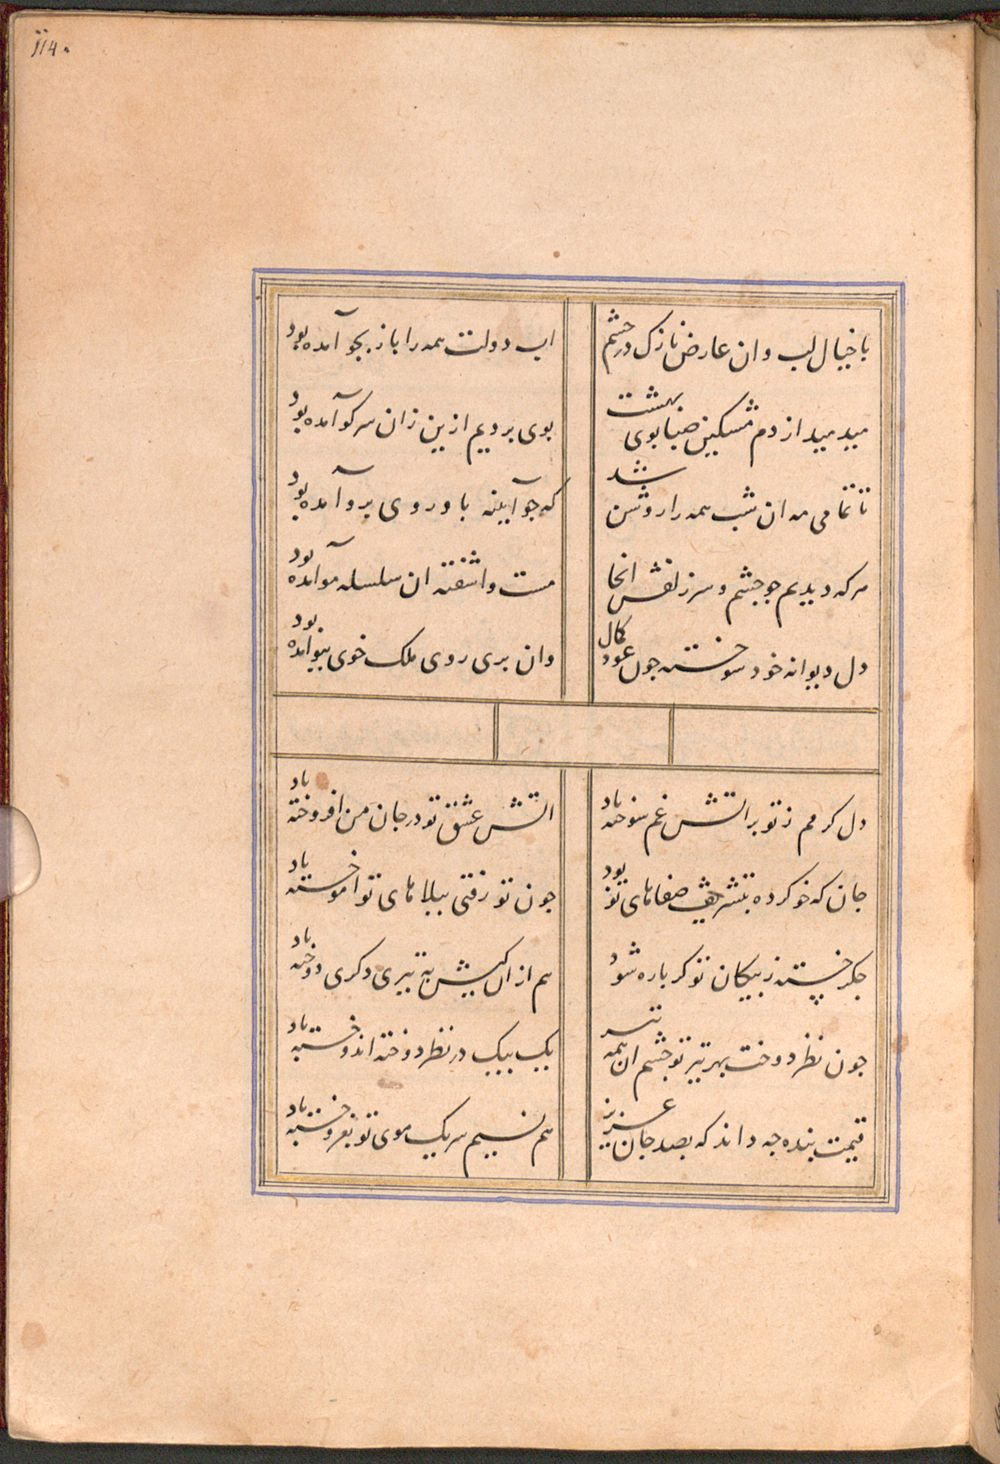 با خیال لب وان عارض نازک در چشم
اب دولت همه را باز بجو آمده بود
میدمید از دم مشکین صبا بوی بهشت
بوی بردیم ازین زان سر کو آمده بود
تا تمامی مه ان شب همه را روشن شد
که جو آیینه با و روی برو آمده بود
هر که دیدیم جو جشم و سر زلفش انجا
مست و اشفته ان سلسله مو آمده بود
دل دیوانه خود سوخته جون عود کمال
وان بری روی ملک خوی آمده بود
دل کر مم ز تو بر اتش غم سوخته باد
اتش عشق تو در جان من افروخته باد
جان که خو کرده بتشریف صفاهای تو بود
جون تو رفتی ببلاهای تو اموخته باد
جکر خسته ز بیکان تو کر باره شود
هم از ان کیش به تیری دکری دوخته باد
جون نظر دوخت بهر تیر تو جشم ان همه تیر
یک بیک در نظر دوخته اندوخته باد
قیمت بنده جه داند که بصد جان عزیز
هم نسیم سر یک موی تو بفروخته باد